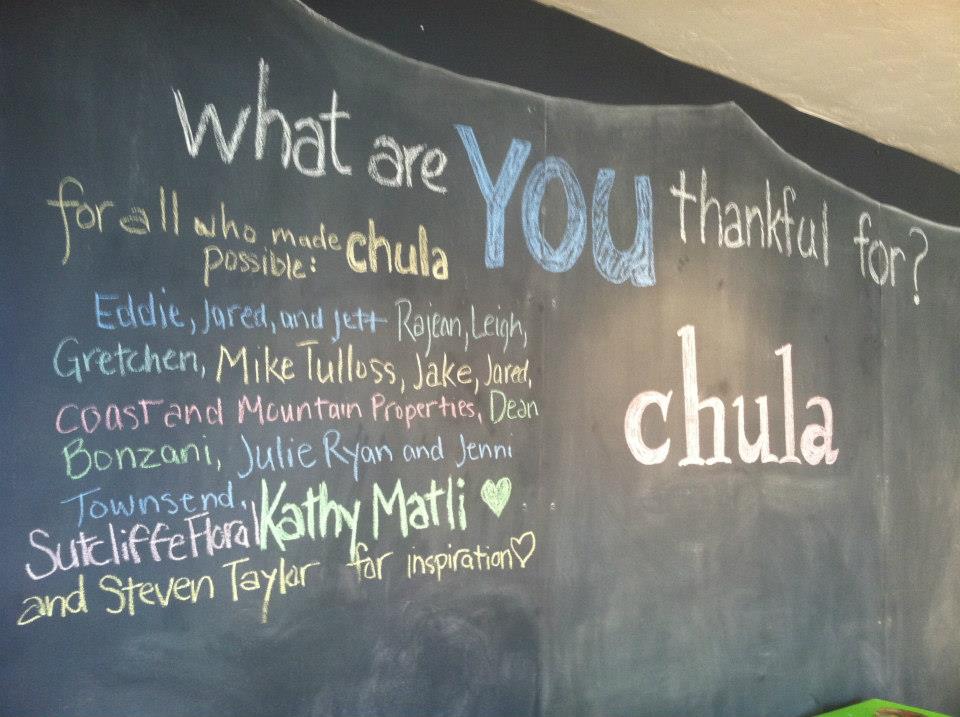 What are YOU thankful for?
for all who made
possible: chula
Eddie, Jared, and Jett Rajean, Leigh,
Gretchen, Mike Tulloss, Jake, Jared,
Coast and Mountain Properties, Dean
Bonzani, Julie Ryan and Jenni
Townsend, Kathy Matli ♡
Sutcliffe Floral
and Steven Taylor for inspiration ♡
chula